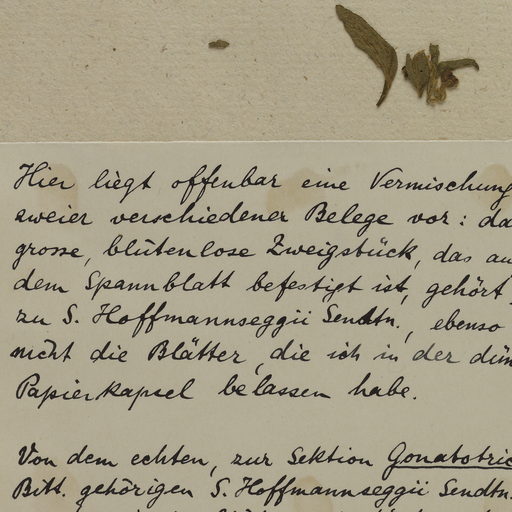 Hier liegt offenbar eine Vermischung
zweier verschiedener Belege vor: da
grosse, blütenlose Zweigstück, das au
dem Spannblatt befestigt ist, gehört
zu S. Hoffmannseggii Sendtn., ebenso
nicht die Blätter, die ich in der dün
Papierkapsel belassen habe.
Von dem echten, zur Sektion Gonatotric
Bitt. gehörigen S. Hoffmannseggii Sendtn.